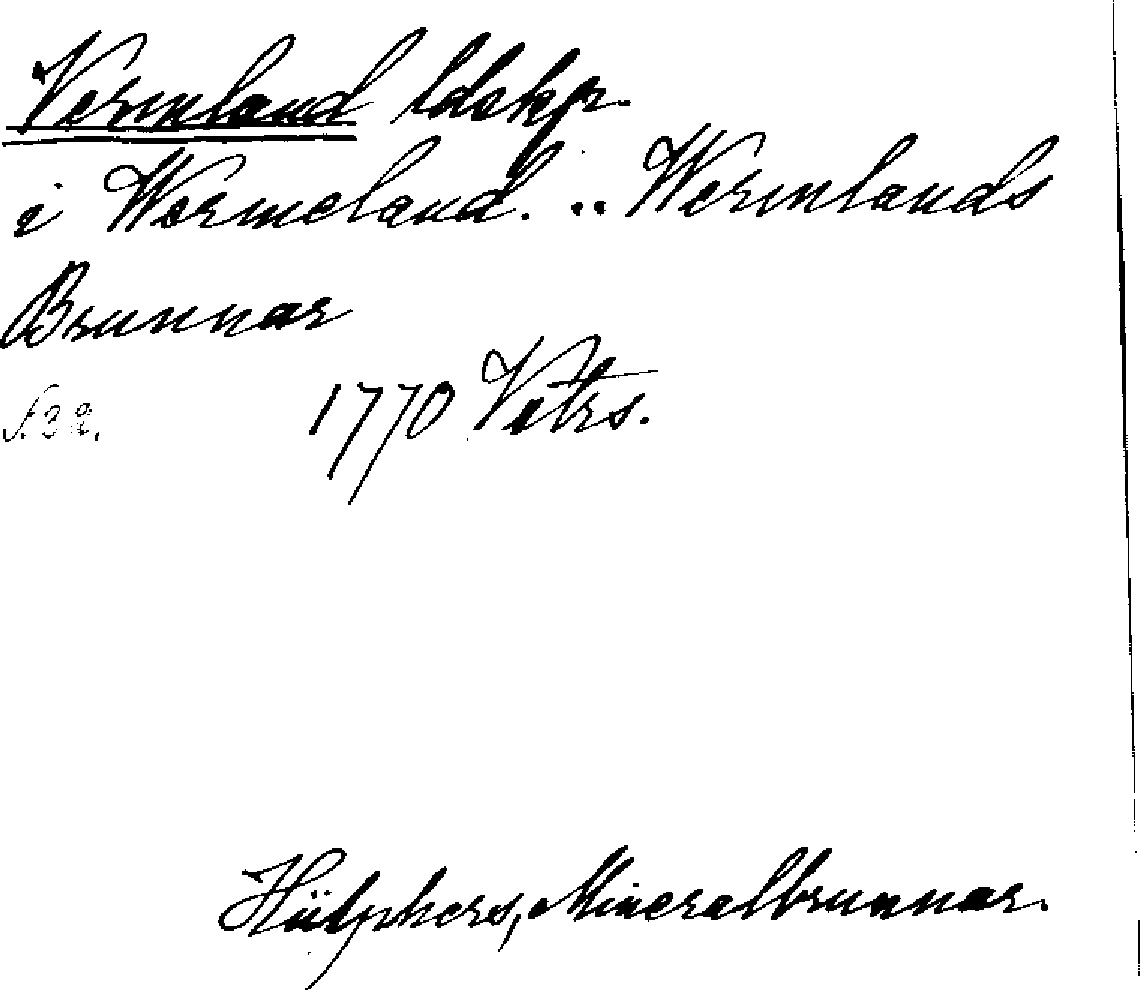 Vermland ldskp.
i Wermeland. .. Wermlands
Brunnar
s. 32. 1770 Vetrs.
Hülphers, Mineralbrunnar.